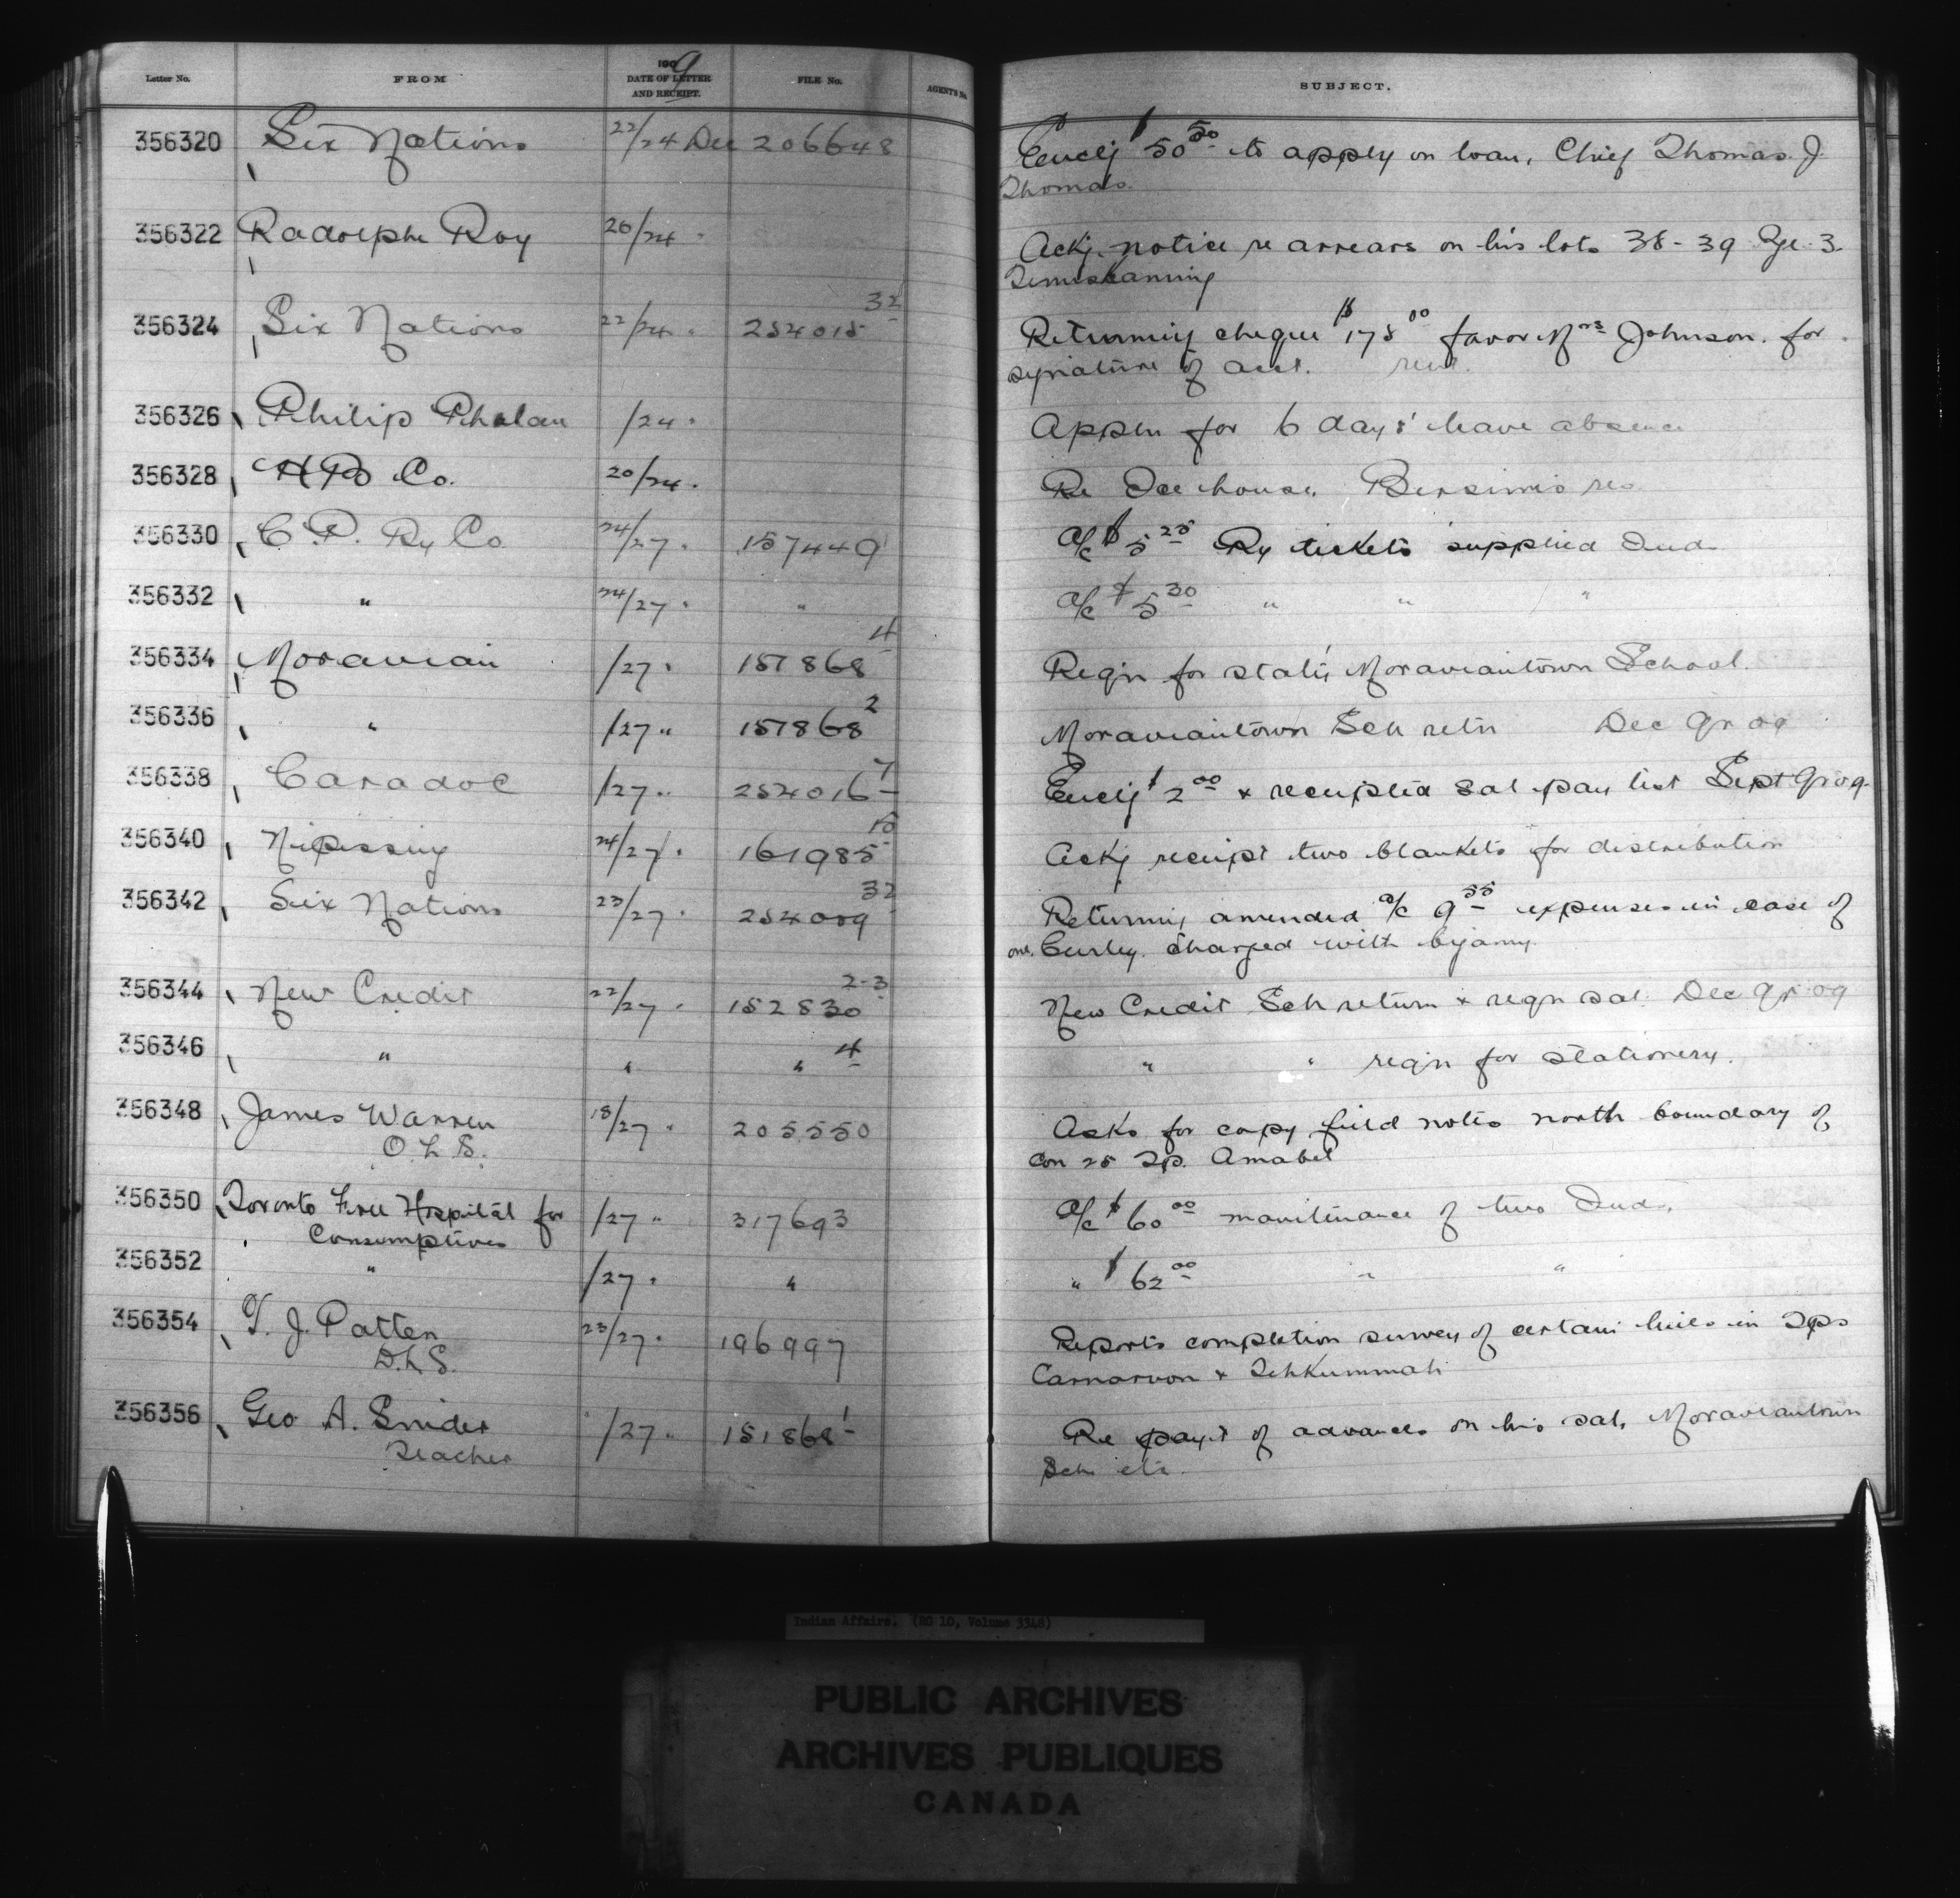 Letter No. FROM 1909 DATE OF LETTER AND RECEIPT. FILE No. AGENT'S No. SUBJECT.
356320 Six Nations 22/24 Dec 206648 Enclg $50.50 to apply on loan, Chief Thomas J.
Thomas.
356322 Radolphe Roy 20/24 " Ackg. notice re arrears on his lots 38-39 Rge 3
Temiskaming
356324 Six Nations 22/24 " 254015-32 Returning cheque $178.00 favor Mrs Johnson. for
signature of acct.
356326 Philip Phalan /24 " Appln for 6 days' leave absence
356328 H B Co. 20/24 " Re Ice house, Bersimis res
356330 C. P. Ry Co 24/27 " 157449 a/c $5.25 Ry tickets supplied Inds
356332 " 24/27 " " a/c $5.30 " " "
356334 Moravian /27 " 157868-4 Reqn for staty Moraviantown School.
356336 " /27 " 157868-2 Moraviantown Sch retn Dec qr 09
356338 Caradoc /27 " 254016-7 Enclg $2.00 & receipted sal pay list Sept qr 09
356340 Nipissing 24/27 " 161985-15 Ackg receipt two blankets for distribution
356342 Six Nations 23/27 " 254009-32 Returning amended a/c 9.55 expenses in case of
one Curley. charged with bigamy.
356344 New Credit 22/27 " 152830 2-3 New Credit Sch return & reqn sal. Dec qr 09
356346 " " " 4 " " reqn for stationery.
356348 James Warren 18/27 " 205550 Asks for copy field notes north boundary of
O. L. S. Con 25 Tp. Amabel
356350 Toronto Free Hospital for /27 " 317693 a/c $60.00 maintenance of two Inds,
Consumptives
356352 " /27 " " " $62.00 " "
356354 T. J. Patten 23/27 " 196997 Reports completion survey of certain lines in Tps
D. L. S. Carnarvon & Tehkummah
356356 Geo A. Snider /27 " 151868-1 Re payt of advances on his sal, Moraviantown
Teacher Sch etc.
Indian Affairs. (RG 10, Volume 3348)
PUBLIC ARCHIVES
ARCHIVES PUBLIQUES
CANADA